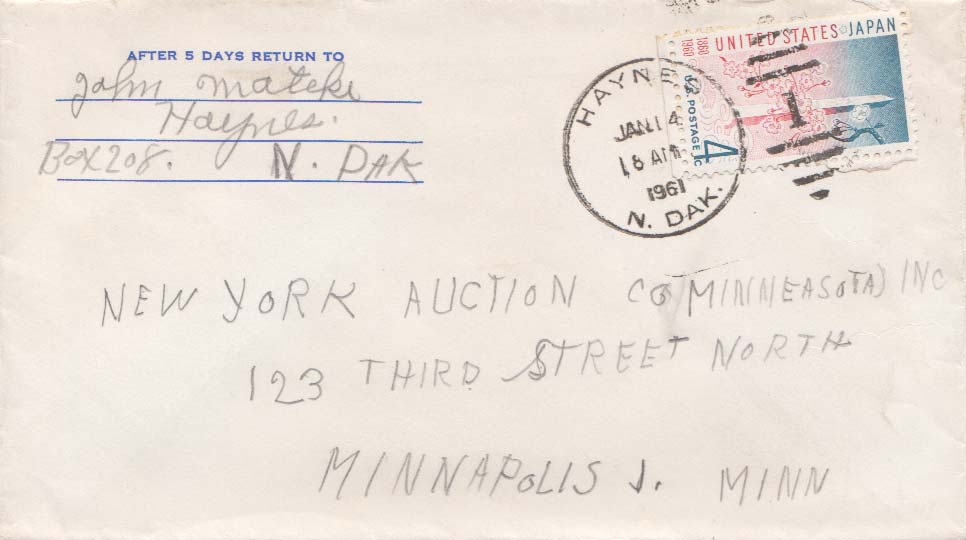 AFTER 5 DAYS RETURN TO
John Mateke
Haynes.
Box 208. N. DAK
HAYNES
JAN 14
8 AM
1961
N. DAK.
1
UNITED STATES JAPAN
1860
1960
U.S. POSTAGE
4
NEW YORK AUCTION CO (MINNEASOTA) INC
123 THIRD STREET NORTH
MINNAPOLIS 1. MINN